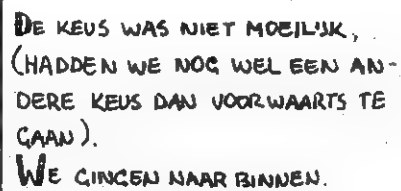 DE KEUS WAS NIET MOEILIJK,
(HADDEN WE NOG WEL EEN AN-
DERE KEUS DAN VOORWAARTS TE
GAAN).
WE GINGEN NAAR BINNEN.